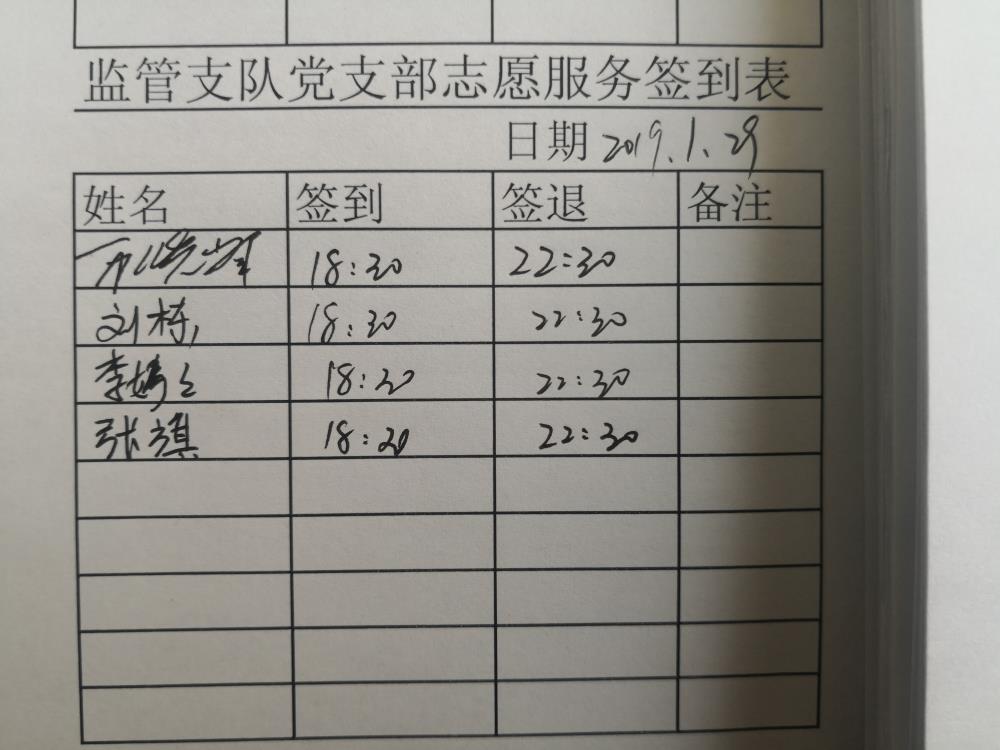 监管支队党支部志愿服务签到表
日期 2019.1.29
姓名 签到 签退 备注
18:30 22:30
刘栋 18:30 22:30
李婷 18:30 22:30
张旗 18:30 22:30